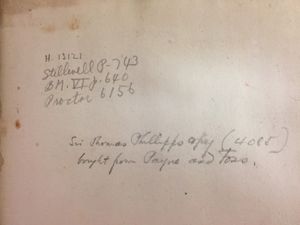 H. 13121
Stillwell P-743
B.M. VI p. 640
Proctor 6156
Sir Thomas Phillipps copy (4085)
bought from Payne and Foss.